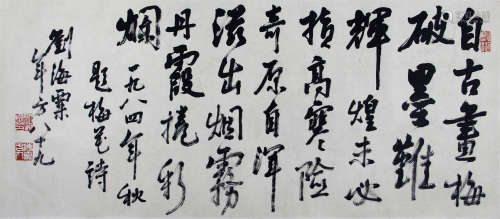 自古畫梅
破墨難
輝煌未必
損高寒險
奇原自渾
滋出烟霧
丹霞捲彩
爛
一九八四年秋
題梅花詩
劉海粟
年方八十九